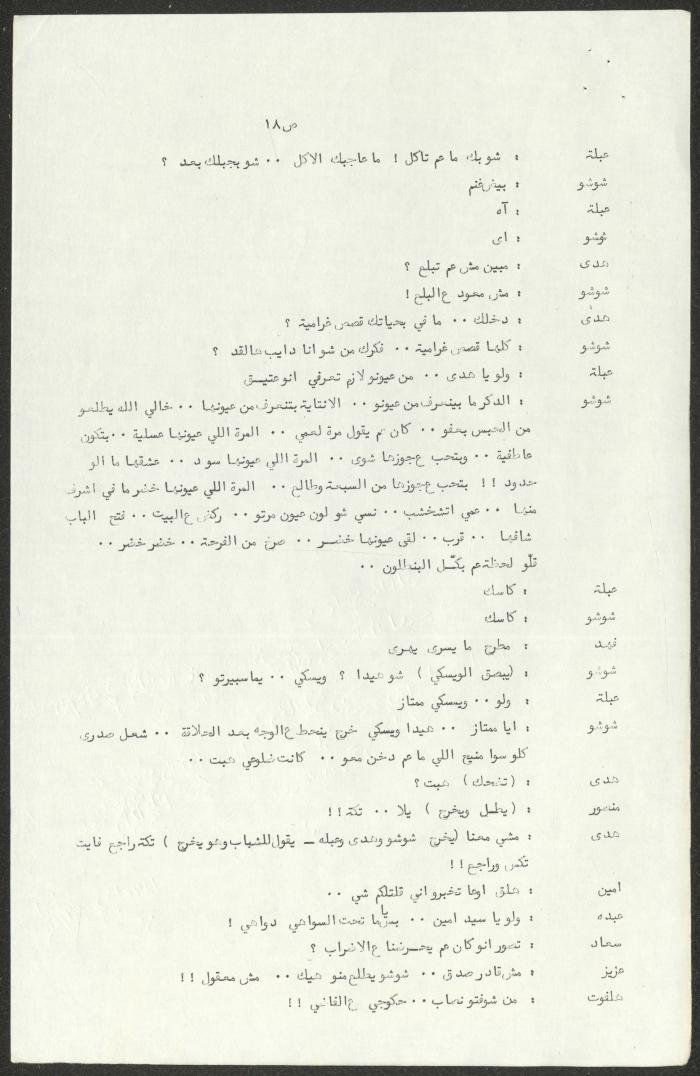 ص ١٨
عبلة : شو بك ما عم تاكل ! ما عاجبك الاكل ٠٠ شو بجبلك بعد ؟
شوشو : بيض غنم
عبلة : آه
شوشو : اى
هدى : مبين مش عم تبلع ؟
شوشو : مش معود ع البلع !
هدى : دخلك ٠٠ ما في بحياتك قصص غرامية ؟
شوشو : كلها قصص غرامية ٠٠ فكرك من شو انا دايب هالقد ؟
عبلة : ولو يا هدى ٠٠ من عيونو لازم تعرفي انو عتيق
شوشو : الدكر ما بينعرف من عيونو ٠٠ الانتاية بتنعرف من عيونها ٠٠ خالي الله يطلعو
من الحبس بعفو ٠٠ كان عم يقول مرة لعمي ٠٠ المرة اللي عيونها عسلية ٠٠ بتكون
عاطفية ٠٠ وبتحب عجوزها شوى ٠٠ المرة اللي عيونها سود ٠٠ عشقها ما الو
حدود !! بتحب عجوزها من السبعة وطالع ٠٠ المرة اللي عيونها خضر ما في اشرف
منها ٠٠ عمي اتشخشب ٠٠ نسي شو لون عيون مرتو ٠٠ ركض ع البيت ٠٠ فتح الباب
شافها ٠٠ قرب ٠٠ لقى عيونها خضر ٠٠ صرخ من الفرحة ٠٠ خضر خضر ٠٠
قلّو لحظة عم بكّل البنطلون ٠٠
عبلة : كاسك
شوشو : كاسك
فهد : مطرح ما يسرى يهرى
شوشو : (يبصق الويسكي ) شو هيدا ؟ ويسكي ٠٠ يما سبيرتو ؟
عبلة : ولو ٠٠ ويسكي ممتاز
شوشو : ايا ممتاز ٠٠ هيدا ويسكي خرج ينحط ع الوجه بعد الحلاقة ٠٠ شعل صدرى
كلو سوا منيح اللي ما عم دخن معو ٠٠ كانت ضلوعي هبت ٠٠
هدى : (تضحك ) هبت ؟
منصور : (يطل ويخرج ) يلا ٠٠ تكة !!
هدى : مشي معنا (يخرج شوشو وهدى وعبله ــ يقول للشباب وهو يخرج ) تكة راجع فايت
تكس وراجع !!
امين : هلق اوعا تخبرو اني قلتلكم شي ٠٠
عبده : ولو يا سيد امين ٠٠ ياما تحت السواهي دواهي !
سعاد : تصور انو كان عم يحرضنا ع الاضراب ؟
عزيز : مش قادر صدق ٠٠ شوشو يطلع منو هيك ٠٠ مش معقول !!
هلفوت : من شوفتو نصاب ٠٠ حكوجي ع الفاضي !!